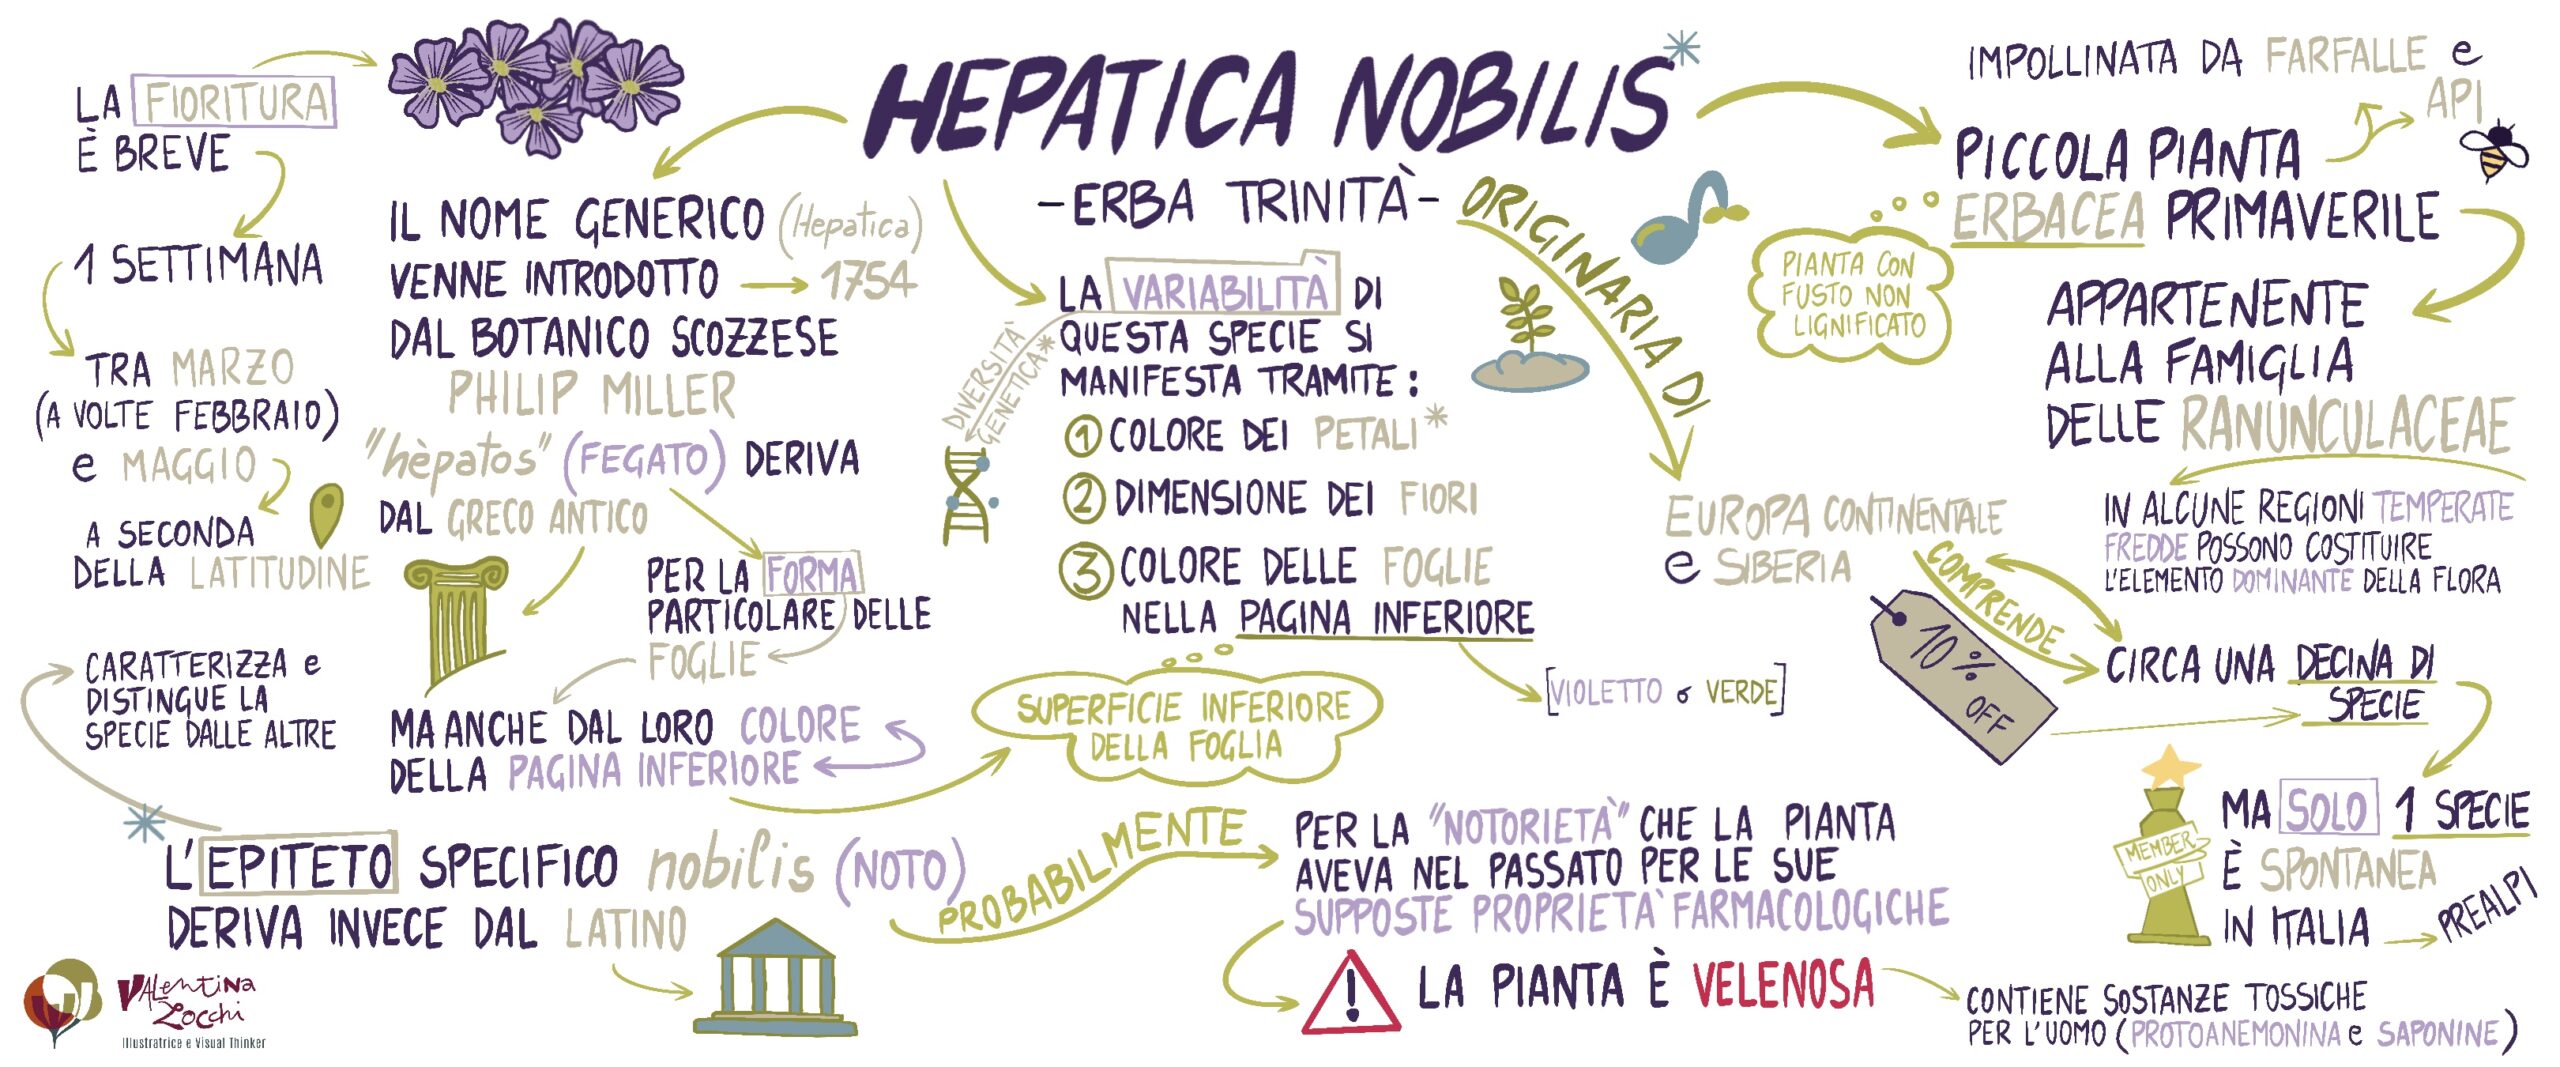 HEPATICA NOBILIS*
- ERBA TRINITÀ -
LA FIORITURA
È BREVE
1 SETTIMANA
TRA MARZO
(A VOLTE FEBBRAIO)
e MAGGIO
A SECONDA
DELLA LATITUDINE
IL NOME GENERICO (Hepatica)
VENNE INTRODOTTO → 1754
DAL BOTANICO SCOZZESE
PHILIP MILLER
"hèpatos" (FEGATO) DERIVA
DAL GRECO ANTICO
PER LA FORMA
PARTICOLARE DELLE
FOGLIE
MA ANCHE DAL LORO COLORE
DELLA PAGINA INFERIORE
SUPERFICIE INFERIORE
DELLA FOGLIA
LA VARIABILITÀ DI
QUESTA SPECIE SI
MANIFESTA TRAMITE:
DIVERSITÀ
GENETICA*
1 COLORE DEI PETALI*
2 DIMENSIONE DEI FIORI
3 COLORE DELLE FOGLIE
NELLA PAGINA INFERIORE
[VIOLETTO o VERDE]
ORIGINARIA DI
EUROPA CONTINENTALE
e SIBERIA
COMPRENDE
CIRCA UNA DECINA DI
SPECIE
10% OFF
MA SOLO 1 SPECIE
È SPONTANEA
IN ITALIA → PREALPI
MEMBER
ONLY
IMPOLLINATA DA FARFALLE e
API
PICCOLA PIANTA
ERBACEA PRIMAVERILE
PIANTA CON
FUSTO NON
LIGNIFICATO
APPARTENENTE
ALLA FAMIGLIA
DELLE RANUNCULACEAE
IN ALCUNE REGIONI TEMPERATE
FREDDE POSSONO COSTITUIRE
L'ELEMENTO DOMINANTE DELLA FLORA
CARATTERIZZA e
DISTINGUE LA
SPECIE DALLE ALTRE
* L'EPITETO SPECIFICO nobilis (NOTO)
DERIVA INVECE DAL LATINO
PROBABILMENTE
PER LA "NOTORIETÀ" CHE LA PIANTA
AVEVA NEL PASSATO PER LE SUE
SUPPOSTE PROPRIETÀ FARMACOLOGICHE
! LA PIANTA È VELENOSA
CONTIENE SOSTANZE TOSSICHE
PER L'UOMO (PROTOANEMONINA e SAPONINE)
VALentiNA
Zocchi
Illustratrice e Visual Thinker